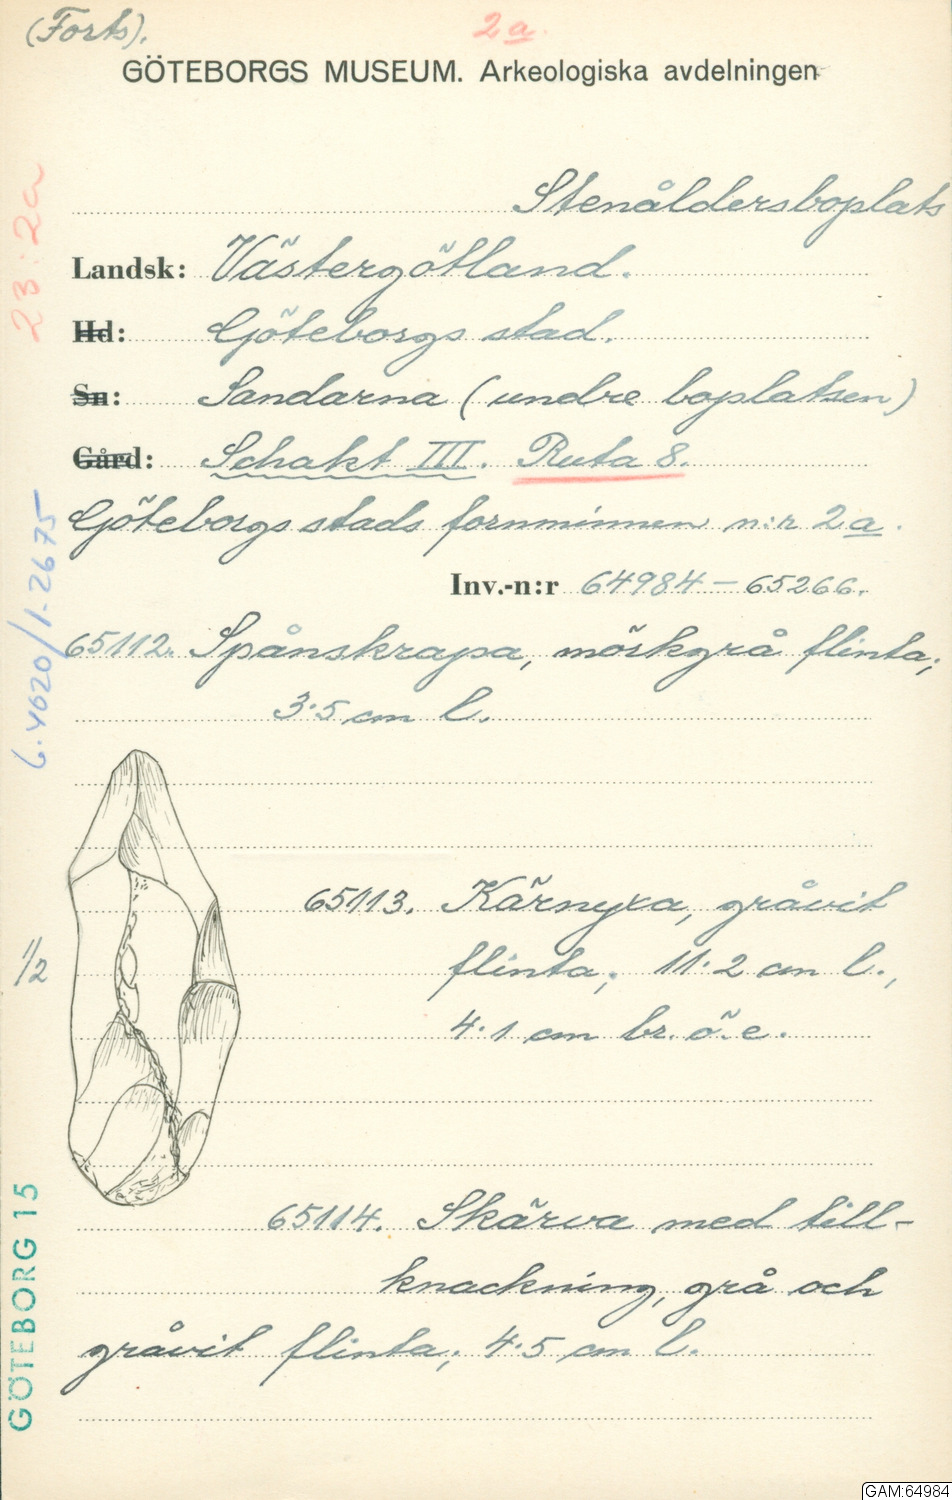 (Forts).
2a.
GÖTEBORGS MUSEUM. Arkeologiska avdelningen
Stenåldersboplats
Landsk: Västergötland.
Hd: Göteborgs stad.
Sn: Sandarna (undre boplatsen)
Gård: Schakt III. Ruta 8.
Göteborgs stads fornminnen n:r 2a.
Inv.-n:r 64984 — 65266.
65112. Spånskrapa, mörkgrå flinta;
3.5 cm l.
65113. Kärnyxa, gråvit
flinta; 11.2 cm l.,
4.1 cm br. ö.e.
1/2
65114. Skärva med till-
knackning, grå och
gråvit flinta; 4.5 cm l.
23:2a
6.4020/1-2675
GÖTEBORG 15
GAM:64984